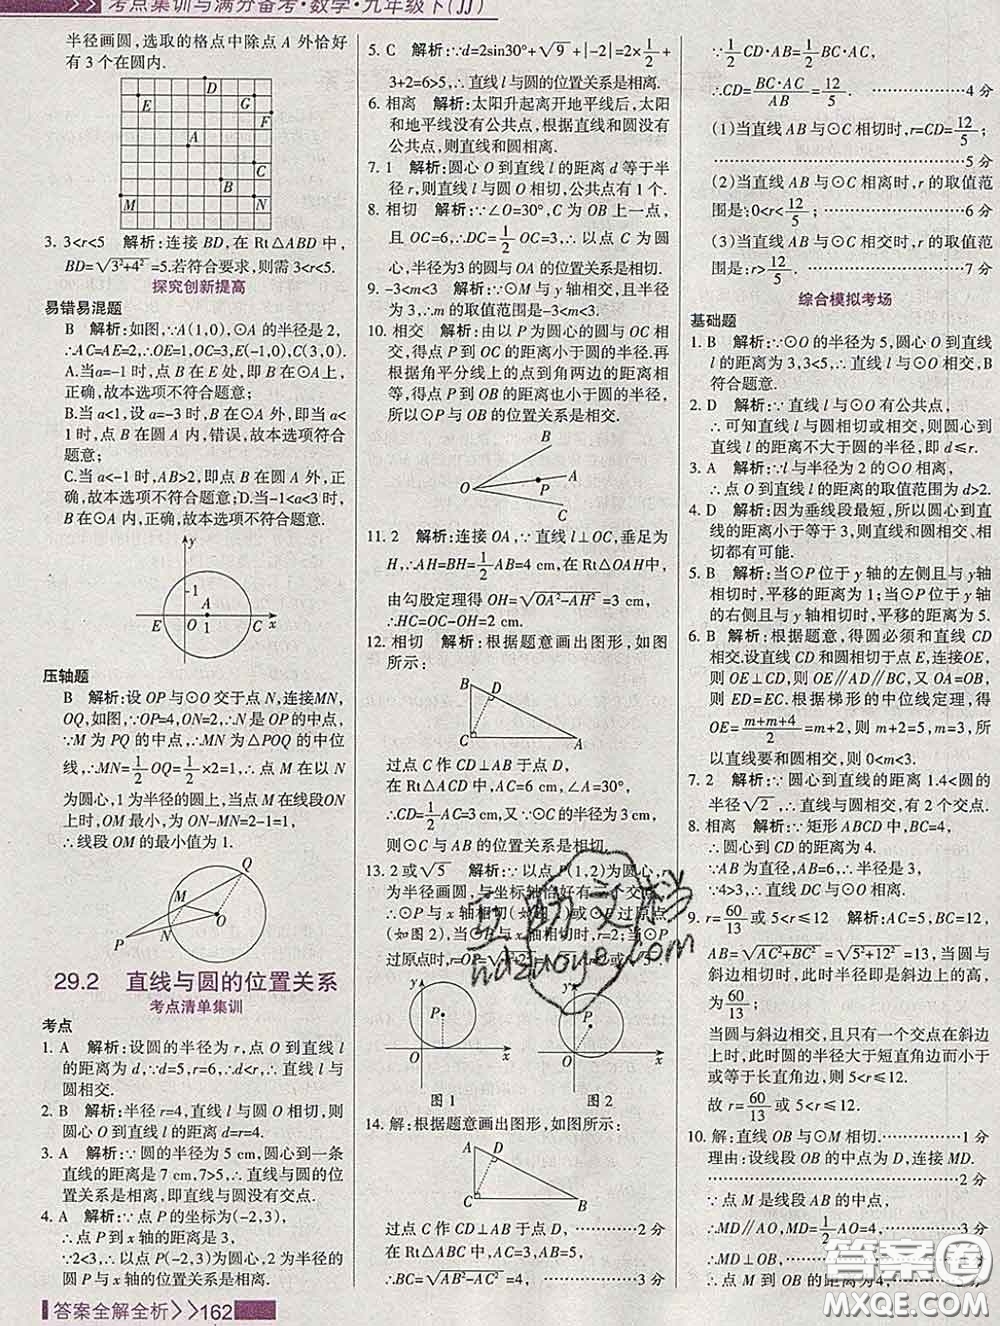 考点集训与满分备考·数学·九年级下(JJ)
半径画圆,选取的格点中除点A外恰好
有3个在圆内.
D
E
G
F
A
C
B
M
N
3. 3<r<5 解析:连接BD,在Rt△ABD中,
BD=√3²+4²=5.若符合要求,则需3<r<5.
探究创新提高
易错易混题
B 解析:如图,∵A(1,0),⊙A的半径是2,
∴AC=AE=2,∴OE=1,OC=3,E(-1,0),C(3,0).
A.当a=-1时,点B在E处,即B在⊙A上,
正确,故本选项不符合题意;
B.当a<1,设a=-3时,B在⊙A外,即当a<
1时,点B在圆A内,错误,故本选项符合
题意;
C.当a<-1时,AB>2,即点B在圆A外,正
确,故本选项不符合题意;D.当-1<a<3时,
B在⊙A内,正确,故本选项不符合题意.
y
1
A
E
O
1
C
x
压轴题
B 解析:设OP与⊙O交于点N,连接MN,
OQ,如图,∵OP=4,ON=2,∴N是OP的中点,
∵M为PQ的中点,∴MN为△POQ的中位
线,∴MN=1/2OQ=1/2×2=1,∴点M在以N
为圆心,1为半径的圆上,当点M在线段ON
上时,OM最小,为ON-MN=2-1=1,
∴线段OM的最小值为1.
Q
M
O
P
N
29.2 直线与圆的位置关系
考点清单集训
考点
1. A 解析:设圆的半径为r,点O到直线l
的距离为d,∵d=5,r=6,∴d<r,∴直线l与
圆相交.
2. B 解析:半径r=4,直线l与圆O相切,则
圆心O到直线l的距离d=r=4.
3. A 解析:∵圆的半径为5 cm,圆心到一条
直线的距离是7 cm,7>5,∴直线与圆的位
置关系是相离,即直线与圆没有交点.
4. A 解析:∵点P的坐标为(-2,3),
∴点P到x轴的距离是3,
∵2<3,∴以点P(-2,3)为圆心,2为半径的
圆与x轴的位置关系是相离.
5. C 解析:∵d=2sin30°+√9+|-2|=2×1/2+
3+2=6>5,∴直线l与圆的位置关系是相离.
6. 相离 解析:太阳升起离开地平线后,太阳
和地平线没有公共点,根据直线和圆没有
公共点,则直线和圆相离.
7. 1 解析:圆心O到直线l的距离d等于半
径r,则直线l与圆O相切,公共点有1个.
8. 相切 解析:∵∠O=30°,C为OB上一点,
且OC=6,∴DC=1/2OC=3,∴以点C为圆
心,半径为3的圆与OA的位置关系是相切.
9. -3<m<3 解析:∵⊙M与y轴相交,且半径
为3,∴m的取值范围是-3<m<3.
10. 相交 解析:由以P为圆心的圆与OC相
交,得点P到OC的距离小于圆的半径.
再根据角平分线上的点到角两边的距离相
等,得点P到OB的距离也小于圆的半径,
所以⊙P与OB的位置关系是相交.
B
A
P
O
C
11. 2 解析:连接OA,∵直线l⊥OC,垂足为
H,∴AH=BH=1/2AB=4 cm,在Rt△HAO中,
由勾股定理得OH=√OA²-AH²=3 cm,
∴HC=OC-OH=2 cm.
12. 相切 解析:根据题意画出图形,如图
所示:
B
D
C
A
过点C作CD⊥AB于点D,
在Rt△ACD中,AC=6 cm,∠A=30°,
∴CD=1/2AC=3 cm,又∵⊙C的半径为3 cm,
则⊙C与AB的位置关系是相切.
13. 2或√5 解析:∵以点P(1,2)为圆心,
为半径画圆,与坐标轴恰好有三个交点,
∴⊙P与x轴相切(如图1)或⊙P过原点
(如图2),当⊙P与x轴相切时,r=2;当⊙P
过原点时,
y
P
x
图1
y
P
O
x
图2
14. 解:根据题意画出图形,如图所示:
A
D
C
B
过点C作CD⊥AB于点D,…………2分
在Rt△ABC中,AC=3,AB=5,
∴BC=√AB²-AC²=4,…………3分
∵1/2CD·AB=1/2BC·AC,
∴CD=BC·AC/AB=12/5.…………4分
(1)当直线AB与⊙C相切时,r=CD=12/5;
…………5分
(2)当直线AB与⊙C相离时,r的取值范
围是:0<r<12/5;…………6分
(3)当直线AB与⊙C相交时,r的取值范
围是:r>12/5.…………7分
综合模拟考场
基础题
1. B 解析:∵⊙O的半径为5,圆心O到直线
l的距离为3,3<5,∴直线l与⊙O相交,B
符合题意.
2. D 解析:∵直线l与⊙O有公共点,
∴可知直线l与圆相切或相交,则圆心O到
直线l的距离不大于圆的半径,即d≤r.
3. A 解析:∵l与半径为2的⊙O相离,
∴点O到直线l的距离的取值范围为d>2.
4. D 解析:因为垂线段最短,所以圆心到直
线的距离小于等于3,则直线和圆相交、相
切都有可能.
5. B 解析:当⊙P位于y轴的左侧且与y轴
相切时,平移的距离为1;当⊙P位于y轴
的右侧且与y轴相切时,平移的距离为5.
6. B 解析:根据题意,得圆必须和直线CD
相交.设直线CD和圆相切于点E,连接OE,
则OE⊥CD,则OE∥AD∥BC,又OA=OB,
则ED=EC.根据梯形的中位线定理,得
OE=m+m+4/2=m+2,则m+2=5,m=3,
所以直线要和圆相交,则0<m<3.
7. 2 解析:∵圆心到直线的距离1.4<圆的
半径√2,∴直线与圆相交,有2个交点.
8. 相离 解析:∵矩形ABCD中,BC=4,
∴圆心到CD的距离为4.
∵AB为直径,AB=6,∴半径是3.
∵4>3,∴直线DC与⊙O相离.
9. r=60/13或5<r≤12 解析:AC=5,BC=12,
AB=√AC²+BC²=√5²+12²=13.当圆与
斜边相切时,此时半径即是斜边上的高,
为60/13;
当圆与斜边相交,且只有一个交点在斜边
上时,此时圆的半径大于短直角边而小于
或等于长直角边,则5<r≤12.
故r=60/13或5<r≤12.
10. 解:直线OB与⊙M相切.…………1分
理由:设线段OB的中点为D,连接MD.
…………2分
∵点M是线段AB的中点,
∴MD∥AO,MD=1/2AO=4.…………3分
∵MD⊥OB,
∴点M到OB的距离为4,
答案全解全析>>162
互助文档
hdzuoye.com
答案圈
MXQE.COM